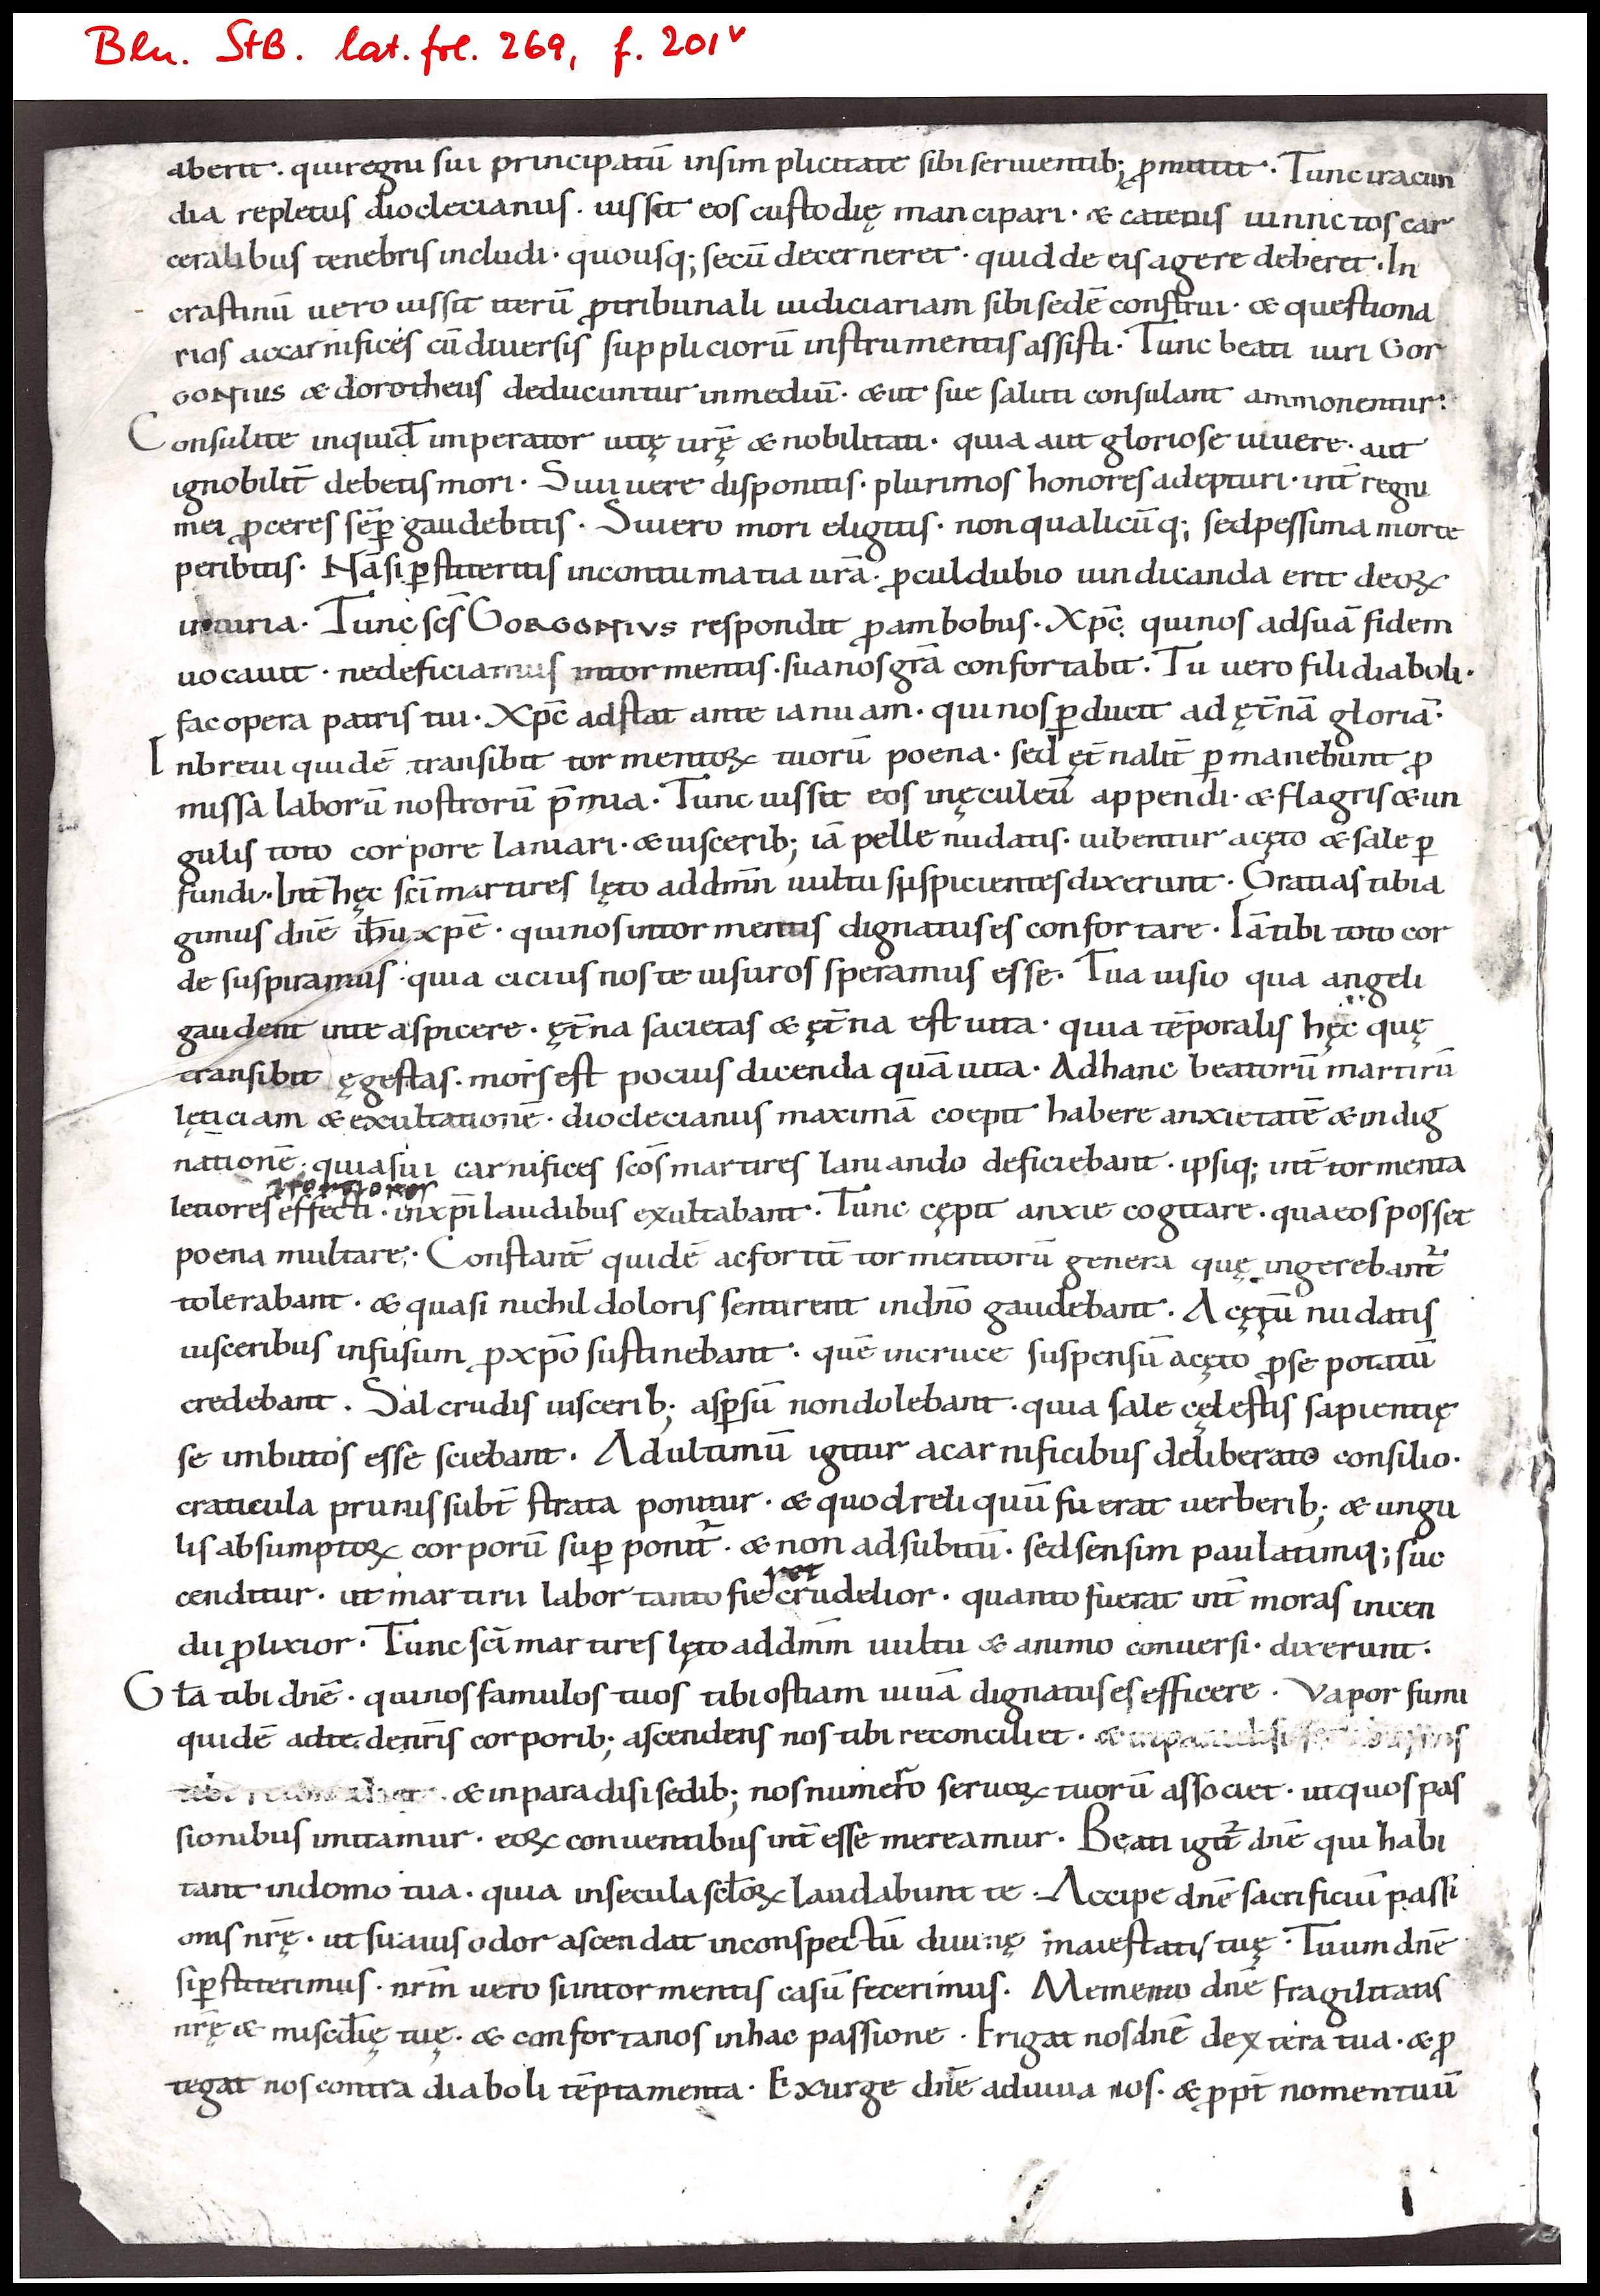 Bln. StB. lat. fol. 269, f. 201v
aberit · qui regni sui principatū in simplicitate sibi seruientib; ꝓmittit · Tunc iracun
dia repletus dioclecianus · iussit eos custodię mancipari · & catenis uinnctos car
ceralibus tenebris includi · quousq; secū decerneret · quid de eis agere deberet · In
crastinū uero iussit iterū ꝓ tribunali iudiciariam sibi sedē construi · & questiona
rios ac carnifices cū diuersis suppliciorū instrumentis assisti · Tunc beati uiri Gor
GONIUS & dorotheus deducuntur in mediū · & ut sue saluti consulant ammonentur:
Consulite inquid imperator uitę urę̄ & nobilitati · quia aut gloriose uiuere · aut
ignobilit̄ debetis mori · Si uiuere disponitis · plurimos honores adepturi · int̄ regni
mei ꝓceres sēꝑ gaudebitis · Si uero mori eligitis · non qualicūq; sed pessima morte
peribitis · Nā si ꝑstiteritis in contumatia urā · ꝓculdubio uindicanda erit deoꝝ
iniuria · Tunc scs̄ GORGONIVS respondit ꝓ ambobus · Xp̄c qui nos ad suā fidem
uocauit · ne deficiamus in tormentis · sua nos gr̄a confortabit · Tu uero fili diaboli ·
fac opera patris tui · Xp̄c adstat ante ianuam · qui nos ꝑducit ad ęt̄nā gloriā ·
In breui quidē transibit tormentoꝝ tuorū poena · sed ęt̄nalit̄ ꝑmanebunt ꝓ
missa laborū nostrorū p̄mia · Tunc iussit eos in ęculeū appendi · & flagris & un
gulis toto corpore laniari · & uiscerib; iā pelle nudatis · iubentur acęto & sale ꝑ
fundi · Int̄ hęc sc̄i martires lęto ad dn̄m uultu suspicientes dixerunt · Gratias tibi a
gimus dn̄e ih̄u xp̄e · qui nos in tormentis dignatus es confortare · Iā tibi toto cor
de suspiramus · quia cicius nos te uisuros speramus esse · Tua uisio qua angeli
gaudent in te aspicere · ęt̄na sacietas & ęt̄na est uita · quia tēporalis hęc quę
transibit ęgestas · mors est pocius dicenda quā uita · Ad hanc beatorū martirū
lęticiam & exultationē · dioclecianus maximā coepit habere anxietatē & indig
nātionē · quia sui carnifices scōs martires laniando deficiebant · ipsiq; int̄ tormenta
letiores effecti · in xp̄i laudibus exultabant · Tunc cępit anxie cogitare · qua eos posset
poena multare · Constant̄ quidē ac fortit̄ tormentorū genera quę ingerebant᷑
tolerabant · & quasi nichil doloris sentirent in dn̄o gaudebant · Acętū nudatis
uisceribus infusum ꝓ xp̄o sustinebant · quē in cruce suspensū acęto ꝓ se potatū
credebant · Sal crudis uiscerib; asꝑsū non dolebant · quia sale cęlestis sapientię
se imbutos esse sciebant · Ad ultimū igitur a carnificibus deliberato consilio ·
craticula prunis subt̄ strata ponitur · & quod reliquū fuerat uerberib; & ungu
lis absumptoꝝ corporū suꝑ ponit᷑ · & non ad subitū · sed sensim paulatimq; suc
cenditur · ut martirii labor tanto fieret crudelior · quanto fuerat int̄ moras incen
dii ꝓlixior · Tunc sc̄i martires lęto ad dn̄m uultu & animo conuersi · dixerunt ·
Gl̄a tibi dn̄e · qui nos famulos tuos tibi ostiam uiuā dignatus es efficere · Vapor fumi
quidē ad te de nr̄is corporib; ascendens nos tibi reconciliet ·
& in paradisi sedib; nos numero seruoꝝ tuorū associet · ut quos pas
sionibus imitamur · eoꝝ conuentibus int̄ esse mereamur · Beati igit᷑ dn̄e qui habi
tant in domo tua · quia in secula scl̄oꝝ laudabunt te · Accipe dn̄e sacrificiū passi
onis nr̄ę · ut suauis odor ascendat in conspectū diuinę maiestatis tuę · Tuum dn̄e
si ꝑstiterimus · nr̄m uero si in tormentis casū fecerimus · Memento dn̄e fragilitatis
nr̄ę & miscd̄ię tuę · & conforta nos in hac passione · Erigat nos dn̄e dextera tua · & ꝓ
tegat nos contra diaboli tēptamenta · Exurge dn̄e adiuua nos · & ꝓpt̄ nomen tuū